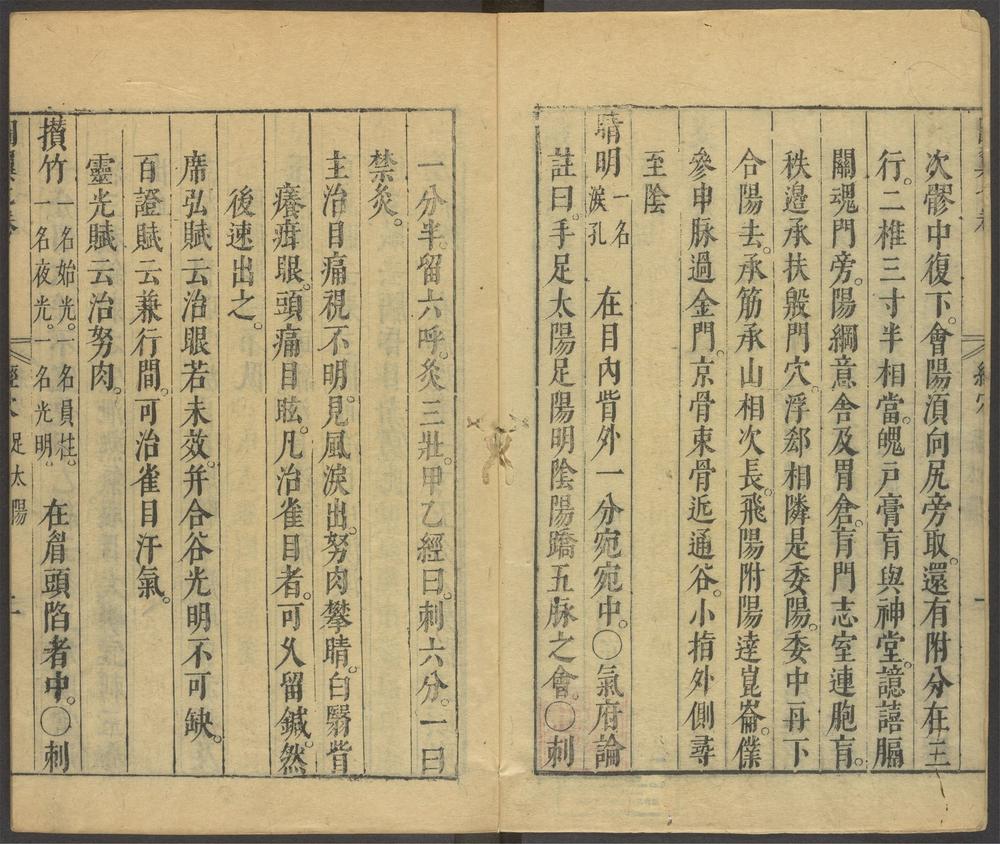 次髎中復下。會陽湏向尻旁取。還有附分在三
行。二椎三寸半相當。魄戸膏肓與神堂。譩譆膈
關魂門旁。陽綱意舎及胃倉。肓門志室連胞肓。
秩邉承扶殷門穴。浮郄相隣是委陽。委中再下
合陽去。承筋承山相次長。飛陽附陽逹崑崙。僕
參申脉過金門。京骨束骨近通谷。小指外側尋
至陰
睛明 一名淚孔 在目內眥外一分宛宛中。〇氣府論
註曰。手足太陽足陽明陰陽蹻五脉之會。〇刺
一分半。留六呼。灸三壯。甲乙經曰。刺六分。一曰
禁灸。
主治目痛視不明。見風淚出。努肉攀睛。白翳眥
癢疳眼。頭痛目眩。凡治雀目者。可久留鍼。然
後速出之。
席弘賦云治眼若未效。并合谷光明不可缺。
百證賦云兼行間。可治雀目汗氣。
靈光賦云治努肉。
攅竹 一名始光。一名員柱。一名夜光。一名光明。 在眉頭陷者中。〇刺
足太陽